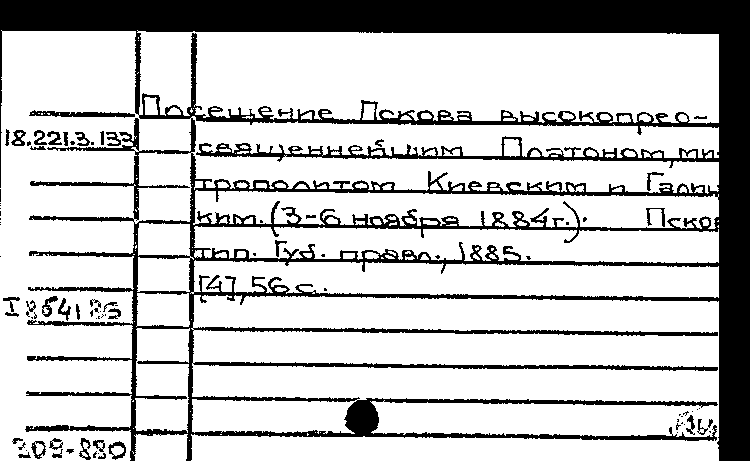 Посещение Пскова высокопрео-
18.221.3.133
священнейшим Платоном, ми
трополитом Киевским и Галиц
ким. (3-6 ноября 1884г.). Псков
тип. Губ. правл., 1885.
[4], 56 с.
I 8641 86
209-880